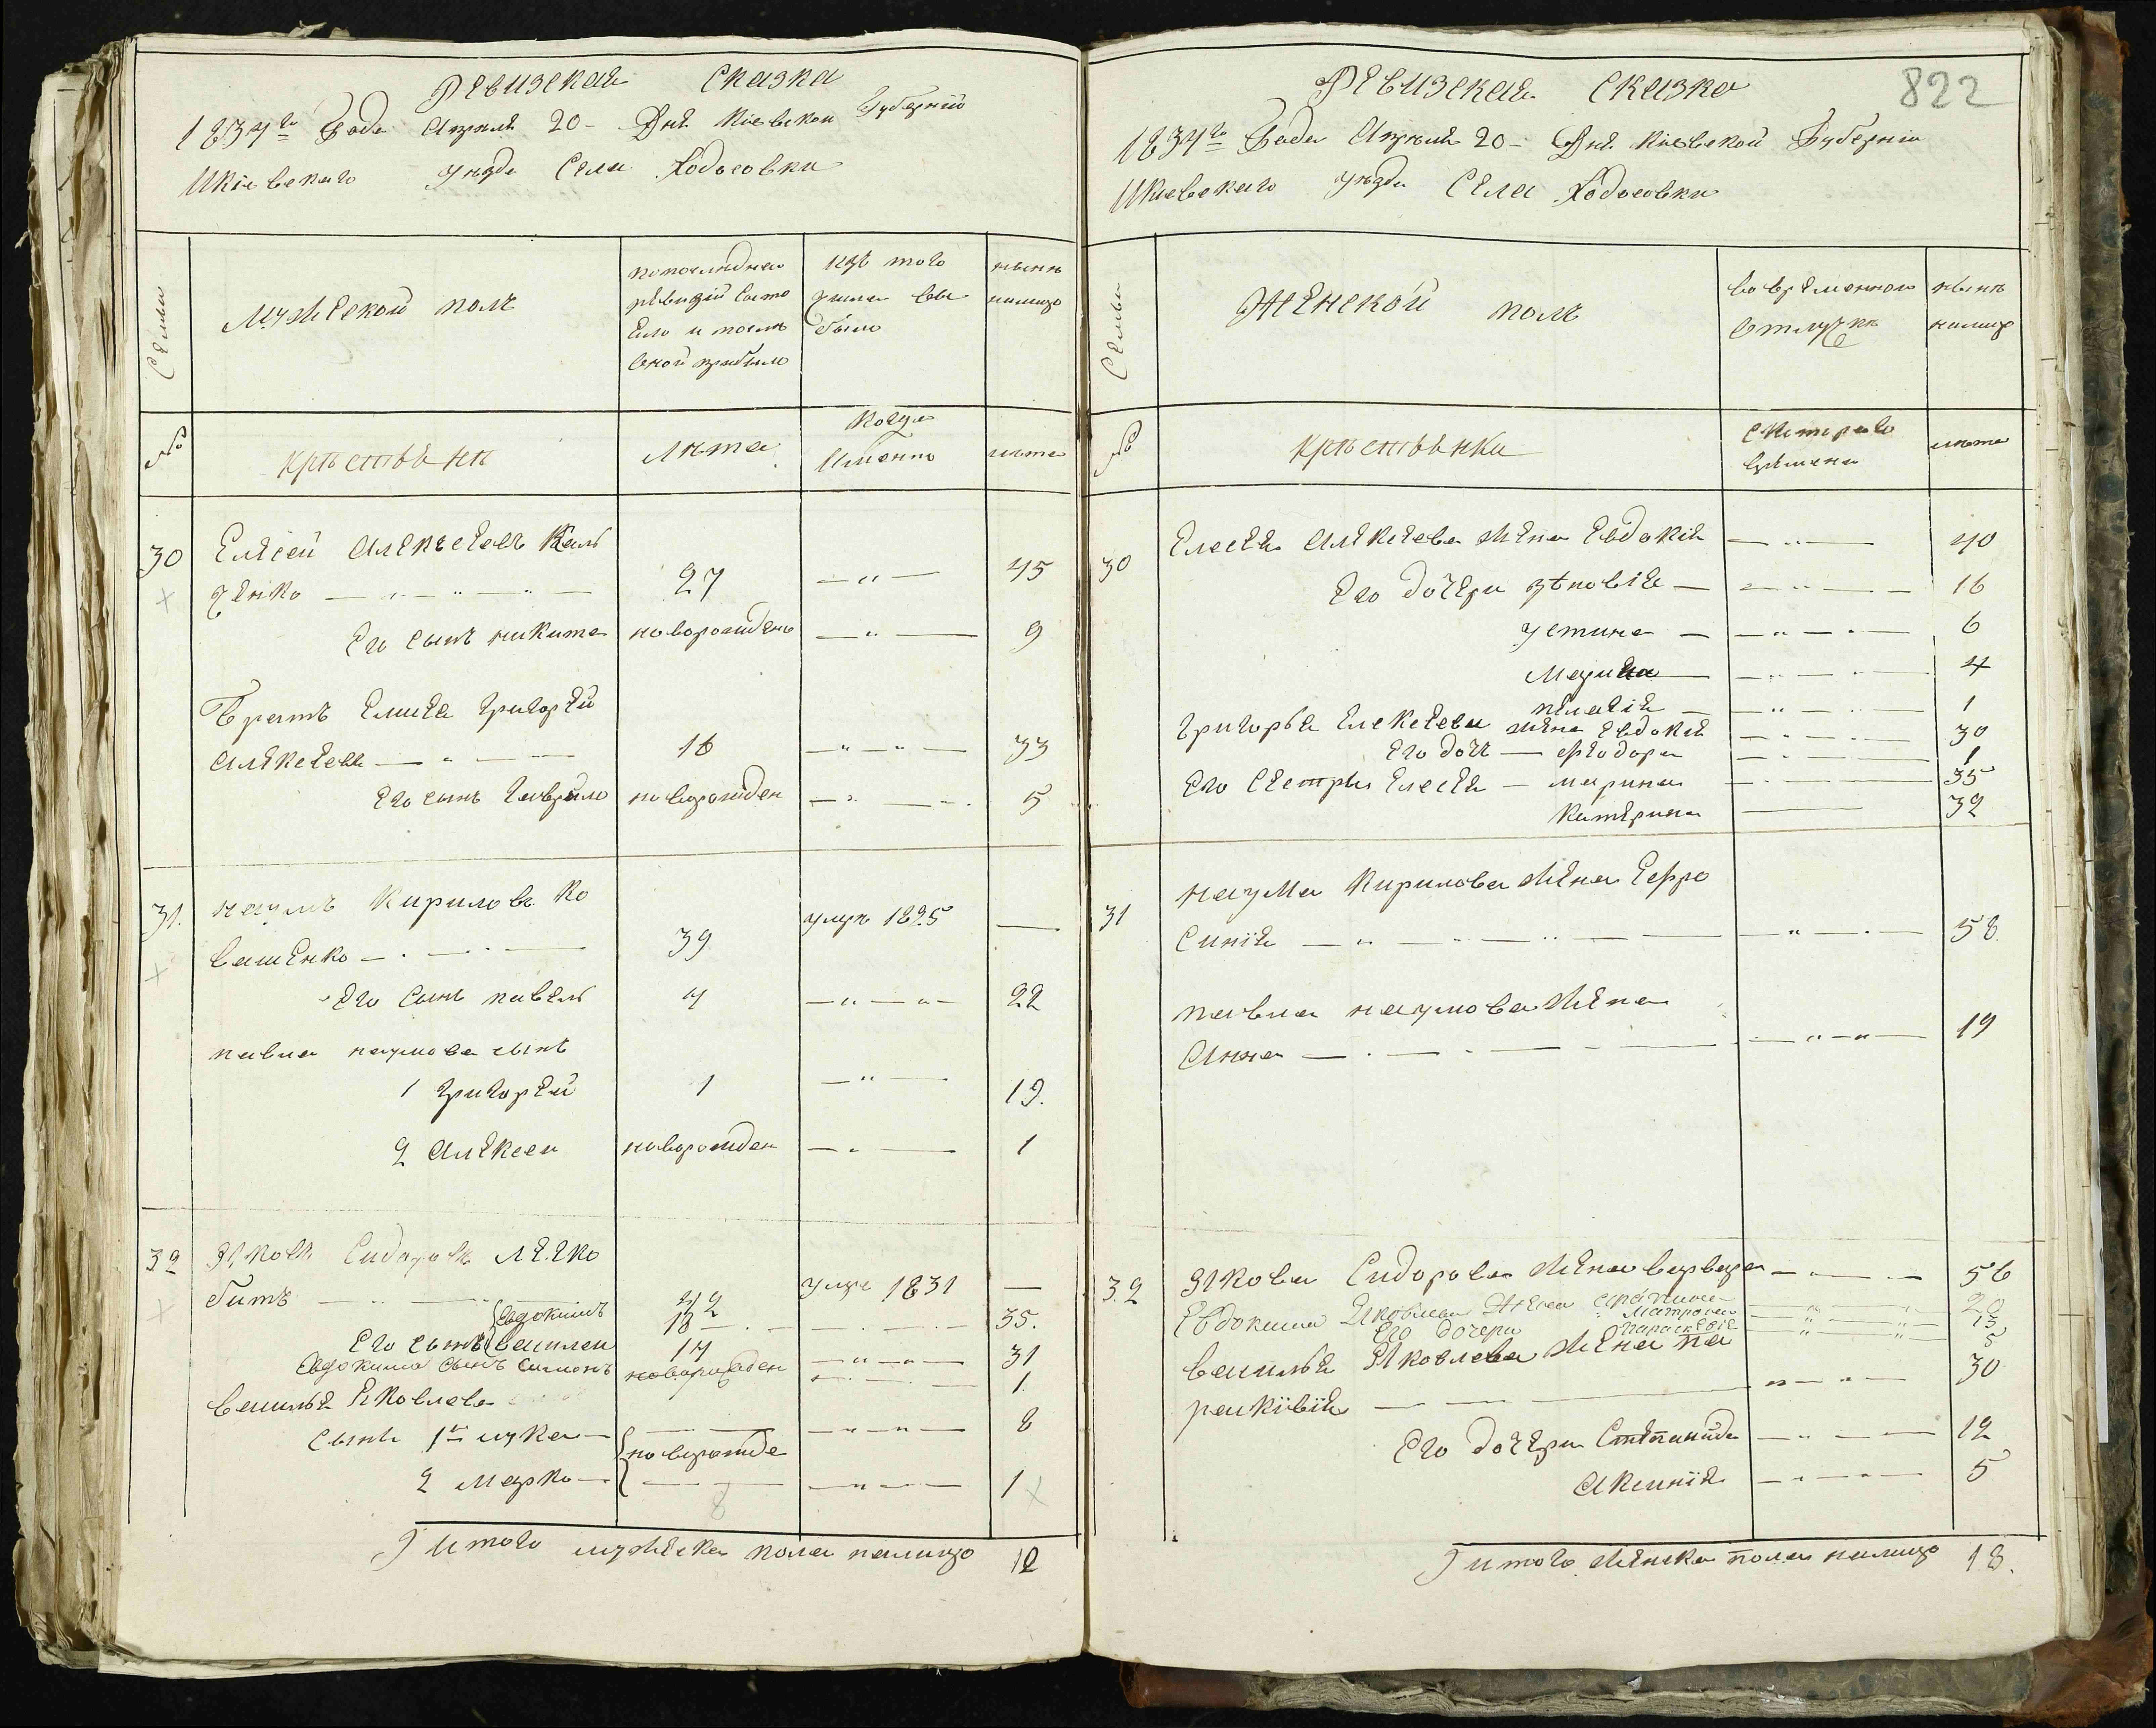 Ревизская Сказка
1834го Года Апреля 20 - Дня Киевской Губернии
Икиевскаго уезда Села Ходосовки
Семьи
Мужеской полъ
попоследнеи
ревизии состо
яло и после
оной прибыло
изъ того
числа вы
было
ныне
налицо
№
крестьяне
Лета
когда
Именно
лета
30
Елисей Алексеевъ Каль
ченко
27
45
Его сынъ никита
новорожденъ
9
Братъ Елисея Григорей
Алексеевъ
16
33
Его сынъ Гаврило
новорожден
5
31.
наумъ Кириловъ Ко
вашенко
39
умре 1825
Его Сынъ павелъ
4
22
павла наумова сынъ
1 Григорей
1
19.
2 Алексеи
новорожден
1
32
Яковъ Сидоровъ
битъ
42
умре 1831
Евдокимъ
18
35.
Его сынъ василеи
14
31
Евдокима сынъ симонъ
новорожден
1.
василья Яковлева
сынъ 1й лука
8
новорожде
2 Марко
1
Итого мужеска пола налицо 12
822
Ревизская сказка
1834го Года Апреля 20 - Дня Киевской Губернии
Икиевскаго уезда Села Ходосовки
Семьи
Женской полъ
во временной
отлучке
ныне
налицо
№
крестьянки
скотораго
времени
лета
30
Елесея Алексеева жена Евдокия
40
Его дочери зеновия
16
устина
6
Марина
4
пелагия
1
Григорья Елексеева жена Евдокия
30
Его дочь Феодора
1
Его Сестры Елесея - марина
35
Катерина
32
31
наума Кирилова жена Ефро
синия
58
павла наумова жена
Анна
19
32
Якова Сидорова жена варвара
56
Евдокима Яковлева жена
Его дочери Матрона
13
параскевия
5
василья Яковлева жена па
раскивия
30
Его дочери Степанида
12
Аксиния
5
Итого женска пола налицо 18.